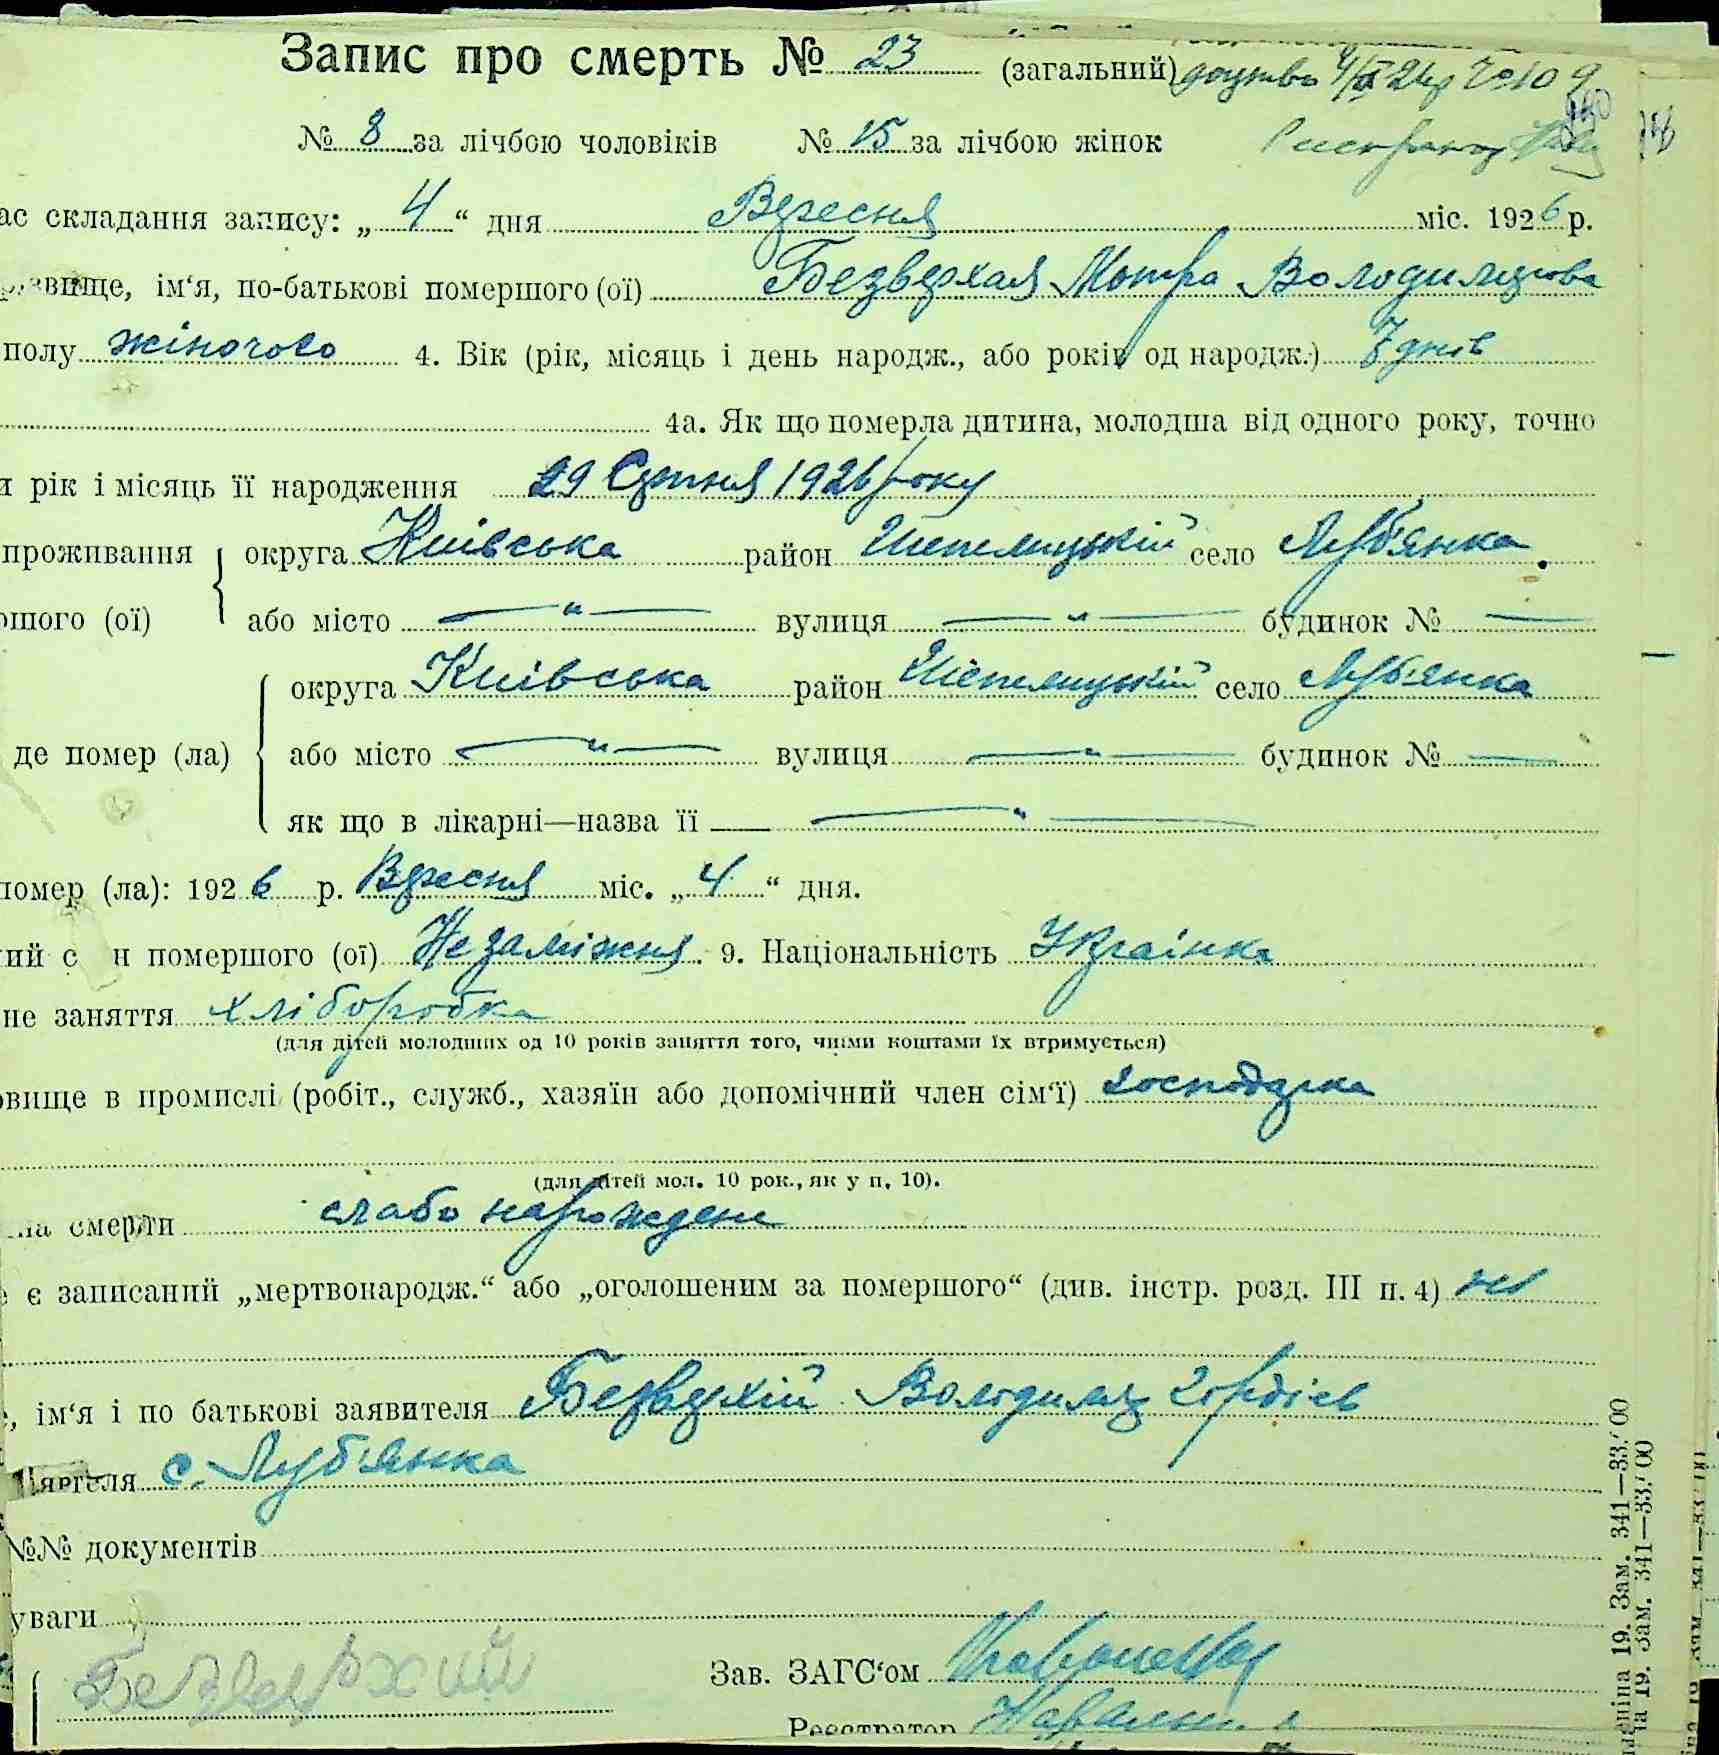 Запис про смерть № 23 (загальний)
№ 8 за лічбою чоловіків № 15 за лічбою жінок
ас складання запису: „ 4 “ дня Вересня міс. 1926 р.
звище, ім‘я, по-батькові помершого (ої) Безверхая Мотра Володимирова
полу жіночого 4. Вік (рік, місяць і день народж., або років од народж.) 7 днів
4а. Як що померла дитина, молодша від одного року, точно
и рік і місяць її народження 29 Серпня 1926 року
проживання округа Київська район Шепелицькій село Луб'янка
ршого (ої) або місто — " — вулиця — " — будинок № —
округа Київська район Шепелицькій село Луб'янка
де помер (ла) або місто — " — вулиця — " — будинок № —
як що в лікарні—назва її — " —
помер (ла): 1926 р. Вересня міс. „ 4 “ дня.
ний с н помершого (ої) Незаміжня 9. Національність Українка
не заняття хліборобка
(для дітей молодших од 10 років заняття того, чиїми коштами їх втримується)
овище в промислі (робіт., служб., хазяїн або допомічний член сім‘ї) господарка
(для дітей мол. 10 рок., як у п. 10).
на смерти слабо нарождене
є записаний „мертвонародж.“ або „оголошеним за помершого“ (див. інстр. розд. III п. 4) ні
, ім‘я і по батькові заявителя Безверхій Володимир Гордіев
яви­теля с. Луб'янка
№№ документів
уваги
Безверхий
Зав. ЗАГС‘ом
Реєстратор
19. Зам. 341—33.
19. Зам. 341—33.